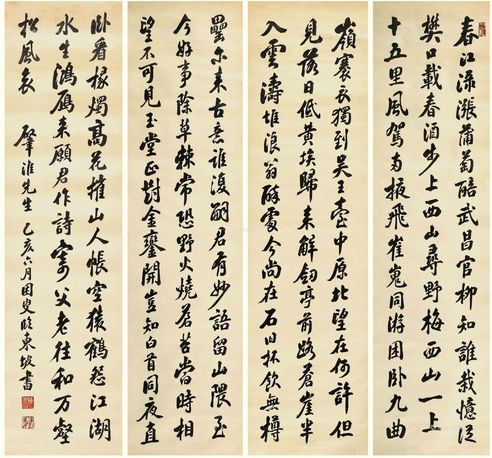 春江渌涨蒲萄醅武昌官柳知谁栽忆从
樊口载春酒步上西山寻野梅西山一上
十五里风驾两掖飞崔嵬同游困卧九曲
岭褰衣独到吴王台中原北望在何许但
见落日低黄埃归来解剑亭前路苍崖半
入云涛堆浪翁醉处今尚在石臼抔饮无樽
罍尔来古意谁复嗣君有妙语留山隈至
今好事除草棘常恐野火烧苍苔当时相
望不可见玉堂正对金銮开岂知白首同夜直
卧看椽烛高花摧山人帐空猿鹤怨江湖
水生鸿雁来愿君作诗寄父老往和万壑
松风哀 肇淮先生 乙亥六月困叟临东坡书